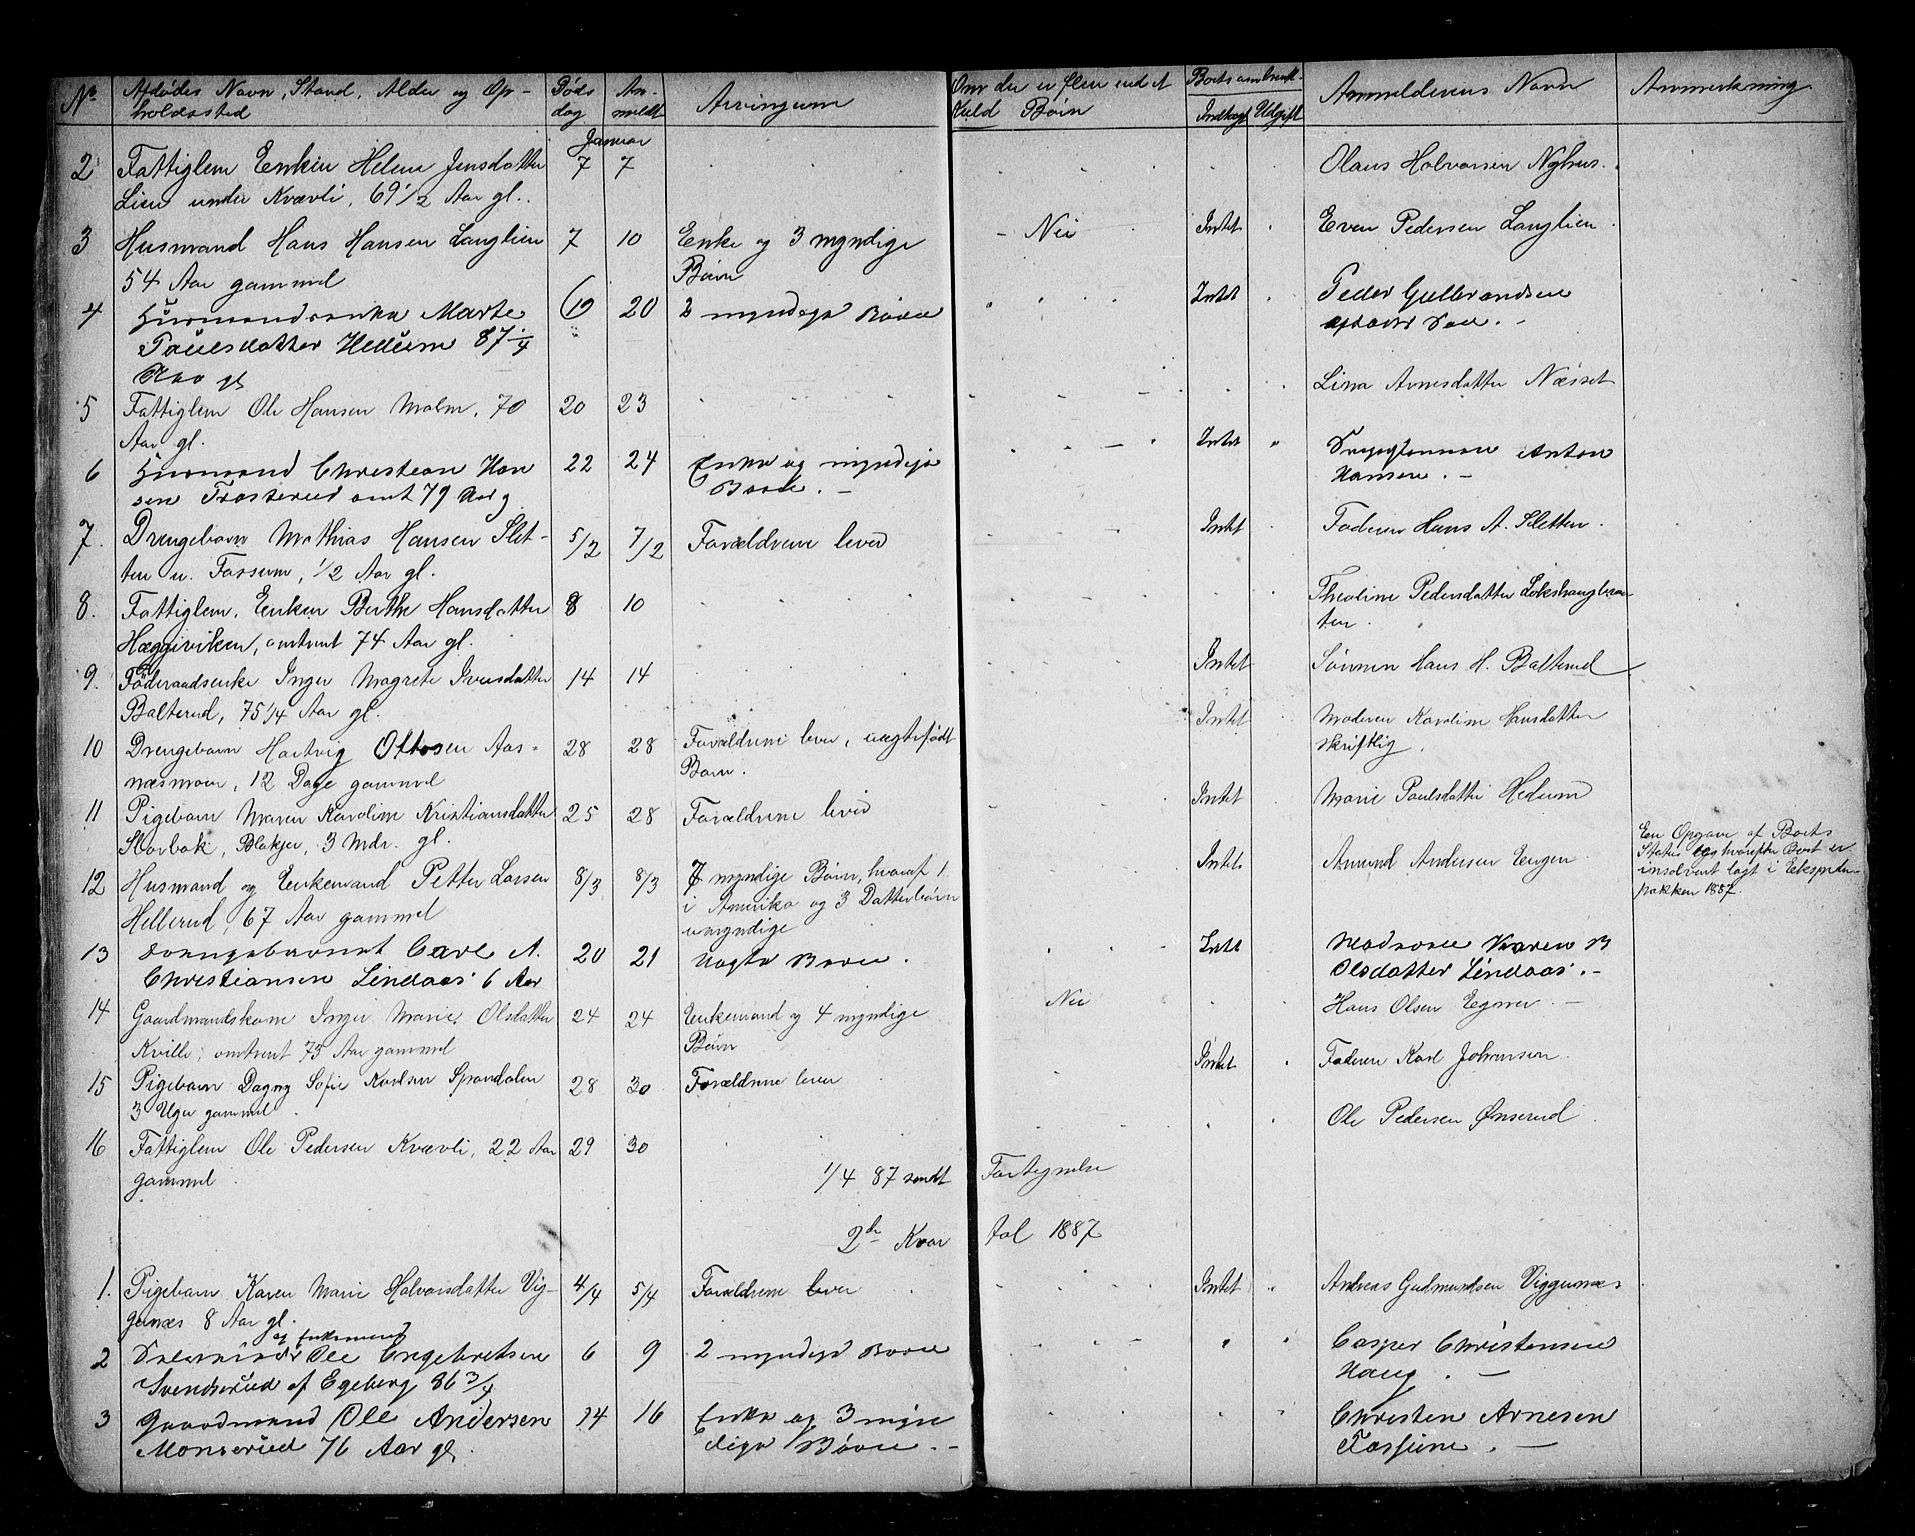 No Afdødes Navn, Stand, Alder og Op- Døds An- Arvingerne Om der er flere end et Boets omtrentl. Anmelderens Navn Anmerkning
holdssted dag meldt Kuld Børn Indtægt Udgift
Januar
2 Fattiglem Enken Helene Jensdatter 7 7 Olaus Halvorsen Nyhus.
Lien under Kvævli, 69 1/2 Aar gl.
3 Husmand Hans Hansen Langlien 7 10 Enke og 3 myndige - Nei Intet Even Pedersen Langlien
54 Aar gammel Børn
4 Husmandsenke Marte 19 20 2 myndige Børn Intet Peder Gulbrandsen
Paulsdatter Hedum 87 1/4
Aar gl
5 Fattiglem Ole Hansen Malm, 70 20 23 Lina Arnesdatter Næsset
Aar gl.
6 Husmand Christian Han 22 24 Enke og myndige Intet Anton
sen Trosterud omt 79 Aar g Børn. - Hansen. -
7. Drengebarn Mathias Hansen Slet- 5/2 7/2 Forældrene lever Intet Faderen Hans A. Sletten.
ten u. Fossum, 1/2 Aar gl.
8. Fattiglem, Enken Berthe Hansdatter 8 10 Theoline Pedersdatter
Hæggeviken, omtrent 74 Aar gl. ten.
9. Føderaadsenke Inger Magrete Iversdatter 14 14 Intet Sønnen Hans H. Balterud
Balterud, 75 1/4 Aar gl.
10 Drengebarn Hartvig Ottosen Aas- 28 28 Forældrene lever, uægtefødt Intet Moderen Karoline Hansdatter
næsmoen, 12 Dage gammel Barn. skriftlig.
11 Pigebarn Maren Karoline Kristiansdatter 25 28 Forældrene lever Intet Marie Paulsdatter Hedum
Slorbak, Blakjer, 3 Mdr. gl.
12 Husmand og Enkemand Petter Larsen 8/3 8/3 7 myndige Børn, hvoraf 1 Intet Amund Andersen Engen. Een Opgave af Boets
Hellerud, 67 Aar gammel i Amerika og 3 Datterbørn Status hvorefter Boet er
umyndige insolvent lagt i Ekspedn-
pakken 1887.
13 Drengebarnet Carl A. 20 21 Uægte Barn. Intet Moderen Karen M
Christiansen Lindaas 6 Aar Olsdatter Lindaas. -
14 Gaardmandskone Inger Marie Olsdatter 24 24 Enkemand og 4 myndige Nei Hans Olsen Egner. -
Kville, omtrent 73 Aar gammel Børn
15 Pigebarn Dagny Sofie Karlsen Spondalen 28 30 Forældrene lever Intet Faderen Karl Johansen.
3 Uger gammel
16 Fattiglem Ole Pedersen Kvævli, 22 Aar 29 30 Ole Pedersen Ønserud
gammel.
1/4 87 sendt Fortegnelse
2de Kvar tal 1887
1. Pigebarn Karen Marie Halvorsdatter Vig- 4/4 5/4 Forældrene lever Intet Andreas Gudmundsen Viggenæs
genæs 8 Aar gl.
og Enkemand
2 Ole Engebretsen 6 9 2 myndige Børn Casper Christensen
Svendserud af Egeberg 86 3/4 Haug. -
3 Gaardmand Ole Andersen 14 16 Enke og 3 myn Christen Arnesen
Monserud 76 Aar gl. dige Børn. - Fossum. -